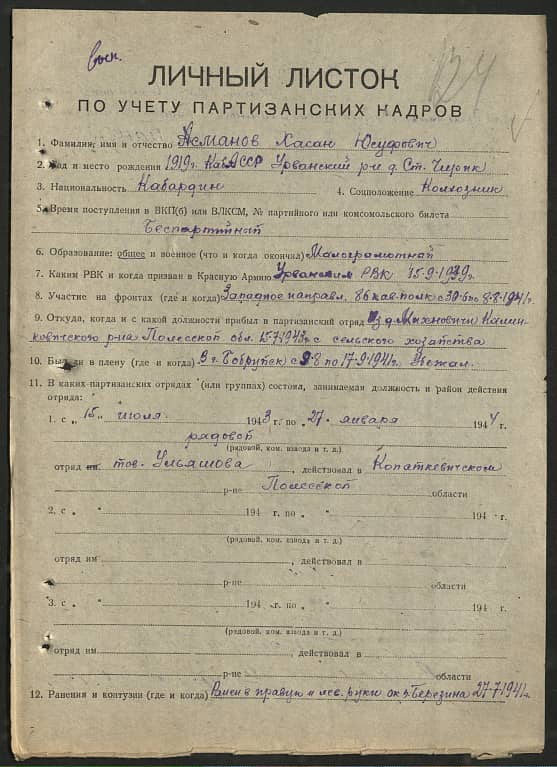 выб.
ЛИЧНЫЙ ЛИСТОК
ПО УЧЕТУ ПАРТИЗАНСКИХ КАДРОВ
1. Фамилия, имя и отчество Асманов Хасан Юсуфович
2. Год и место рождения 1919г. КабАССР Урванский р-н д. Ст. Черек
3. Национальность Кабардин 4. Соцположение Колхозник
5. Время поступления в ВКП(б) или ВЛКСМ, № партийного или комсомольского билета
Беспартийный
6. Образование: общее и военное (что и когда окончил) Малограмотный
7. Каким РВК и когда призван в Красную Армию Урванским РВК 15.9.1939г.
8. Участие на фронтах (где и когда) Западное направл. 86 кав. полк с по 8.8.1941г.
9. Откуда, когда и с какой должности прибыл в партизанский отряд Из д. Михновичи Калин-
ковичского р-на Полесской обл. 15.7.1943г. с сельского хозяйства
10. Был ли в плену (где и когда) В г. Бобруйск с 9.8 по 17.9.1941г. Бежал.
11. В каких партизанских отрядах (или группах) состоял, занимаемая должность и район действия
отряда:
1. с „ 15 „ июля 1943 г. по „ 27 „ января 1944 г.
рядовой
(рядовой, ком. взвода и т. д.)
отряд им. тов. Ульяшова, действовал в Копаткевичском
р-не Полесской области
2. с „ „ 194 г. по „ „ 194 г.
(рядовой, ком. взвода и т. д.)
отряд им. , действовал в
р-не области
3. с „ „ 194 г. по „ „ 194 г.
(рядовой, ком. взвода и т. д.)
отряд им. , действовал в
р-не области
12. Ранения и контузии (где и когда) в правую и лев. руки ок. р. Березина 27.7.1941г.